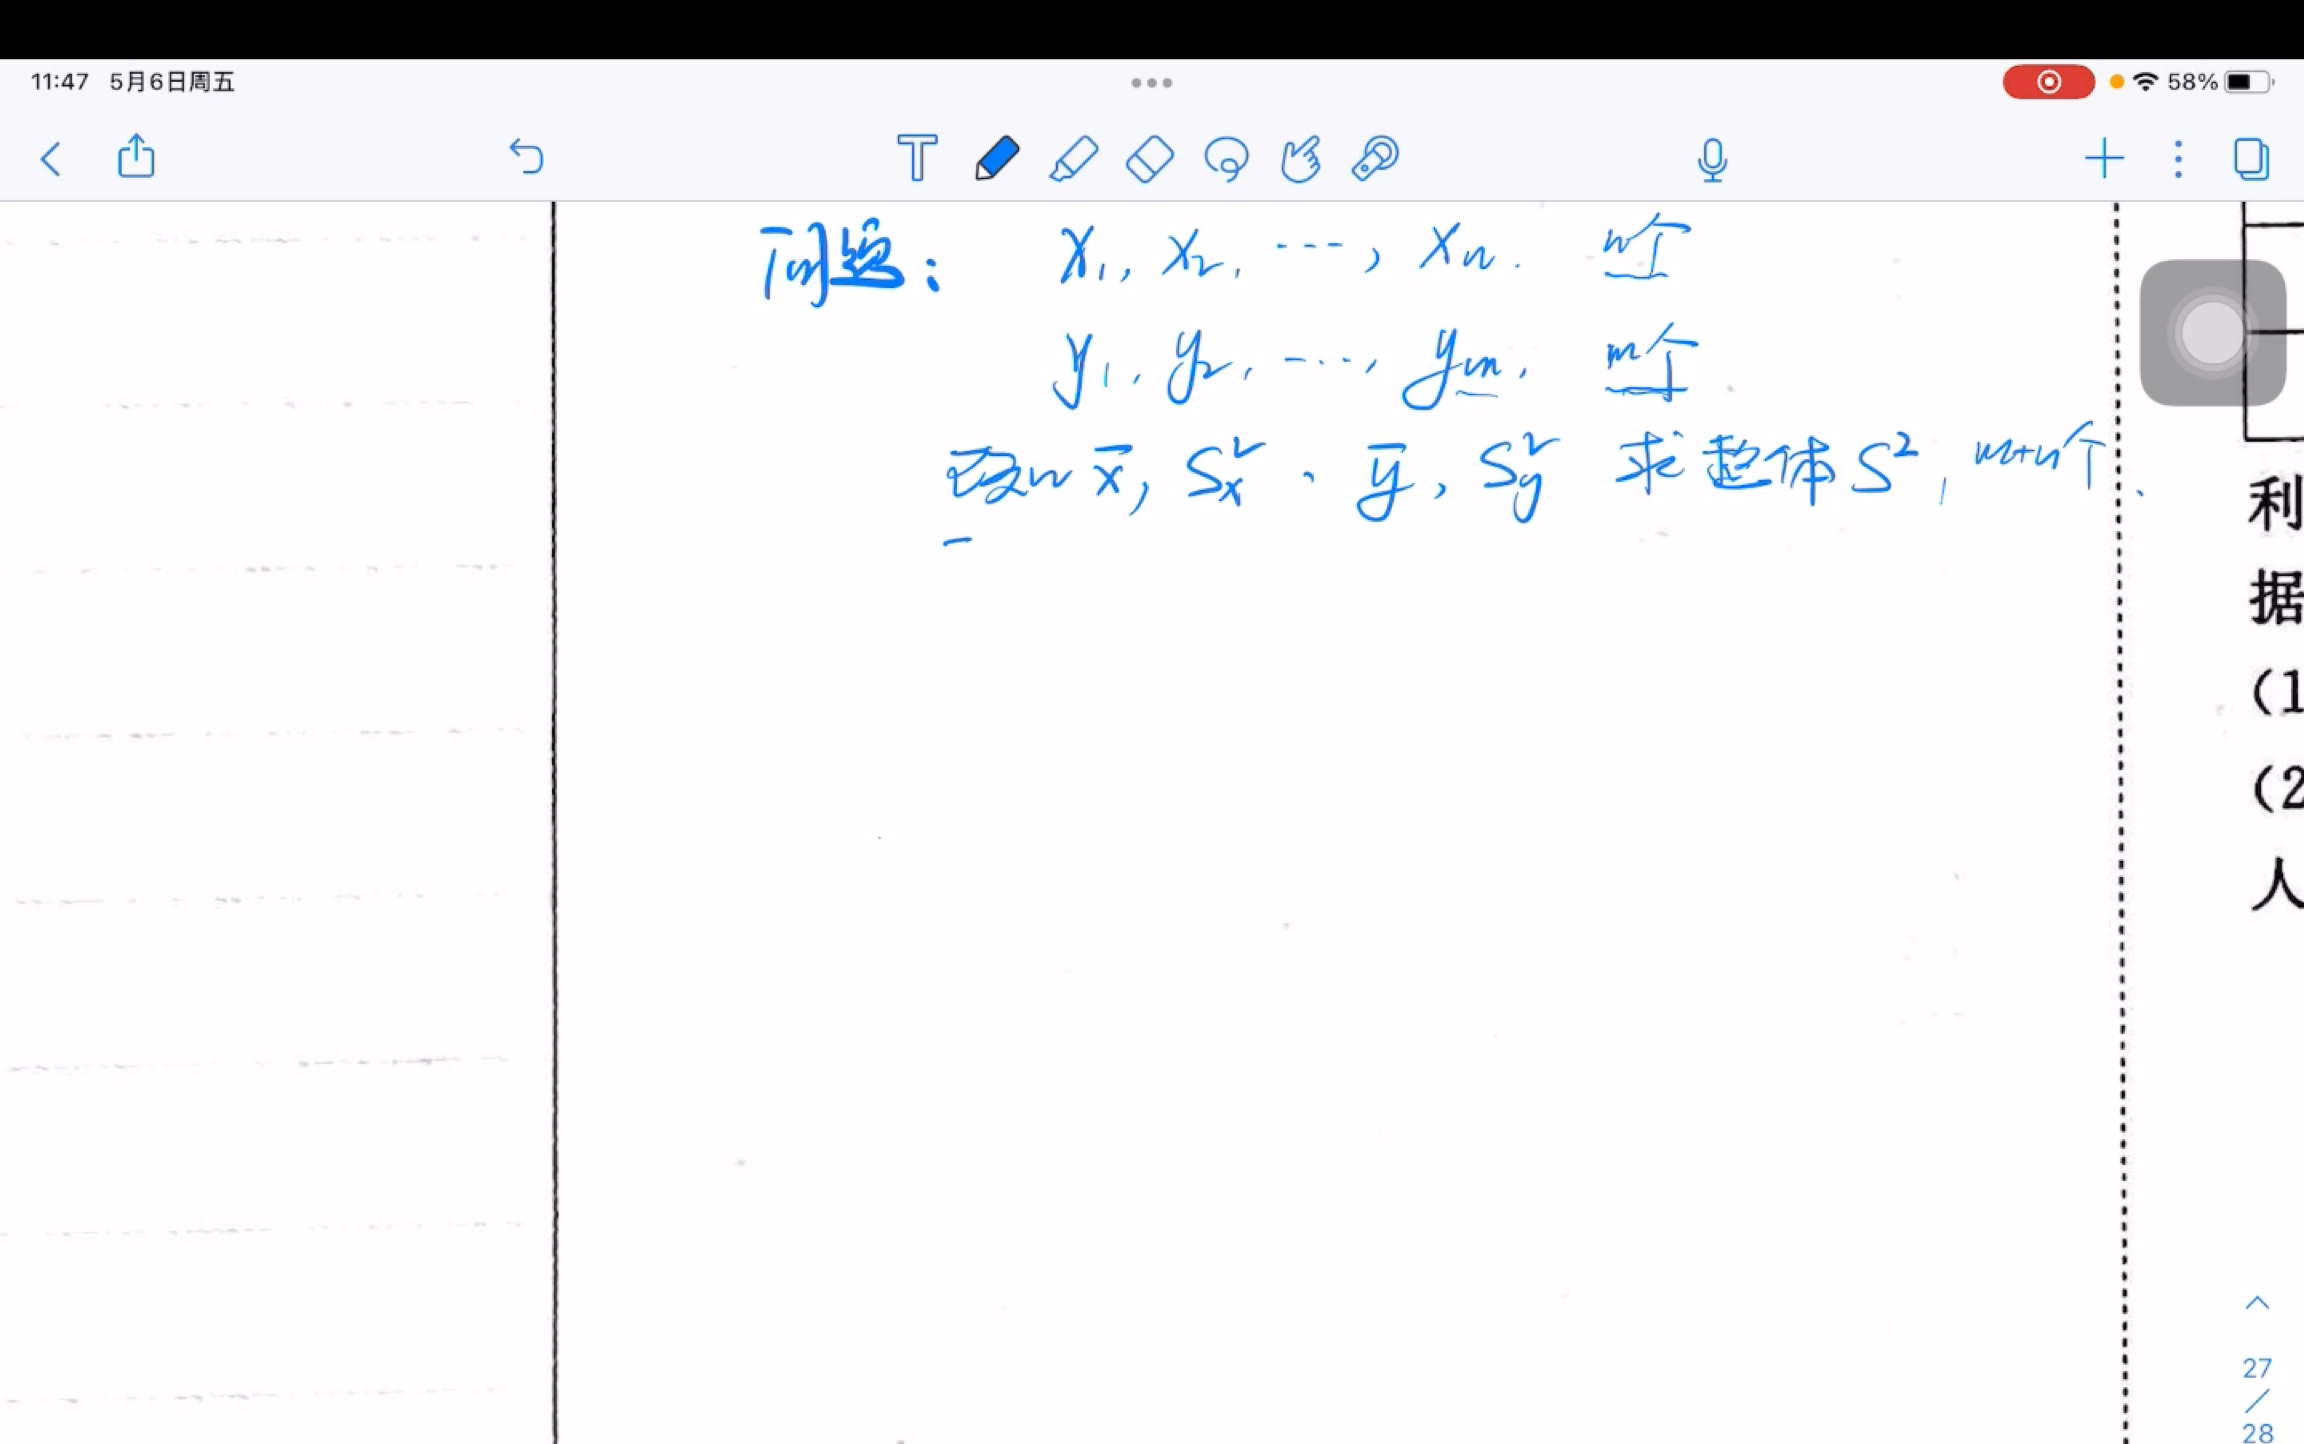 11:47 5月6日周五 58%
问题： x₁, x₂, ···, xn. n个
y₁, y₂, ···, ym, m个
x̄, Sx², ȳ, Sy² 求整体S², m+n个.
利
据
(1
(2
人
27
/
28